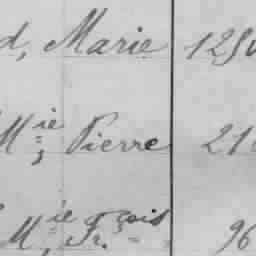 d, Marie 125
Mie, Pierre 21
Mie Fr.çois 96